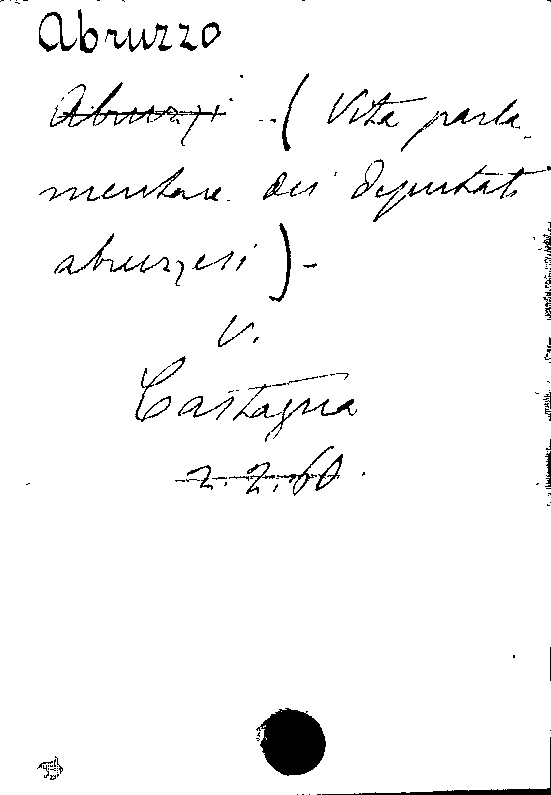 Abruzzo
Abruzzi - ( Vita parla-
mentare dei deputati
abruzzesi ) -
V.
Castagna
2.2.60.